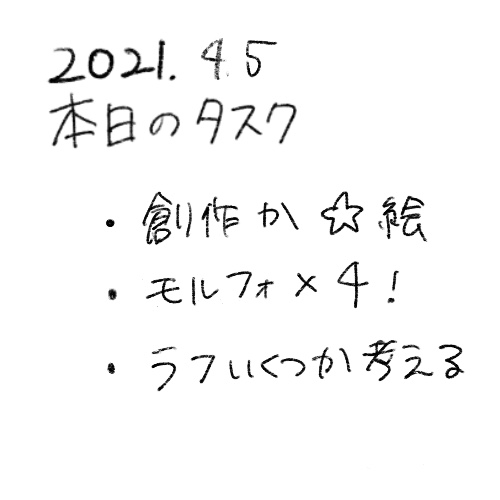 2021. 4.5
本日のタスク
・創作か☆絵
・モルフォ×4!
・ラフいくつか考える